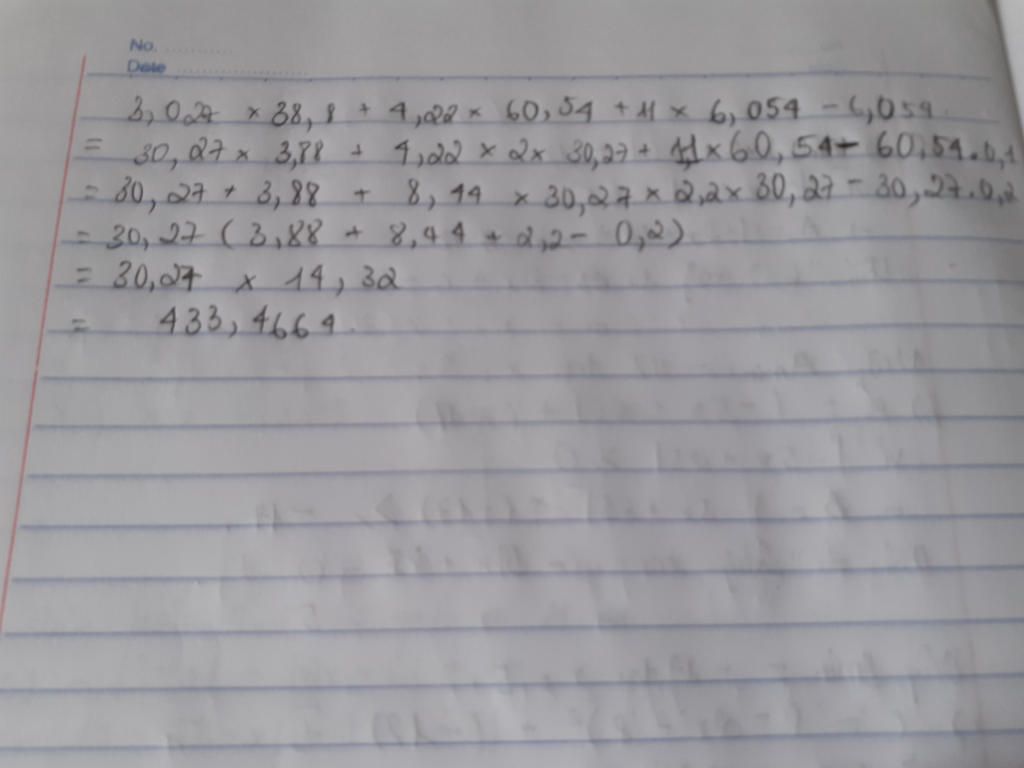 No. ............
Date ......................
3,027 × 38,8 + 4,22 × 60,54 + 11 × 6,054 - 6,054.
= 30,27 × 3,88 + 4,22 × 2 × 30,27 + 1,1 × 60,54 - 60,54.0,1
= 30,27 + 3,88 + 8,44 × 30,27 × 2,2 × 30,27 - 30,27.0,2
= 30,27 (3,88 + 8,44 + 2,2 - 0,2)
= 30,27 × 14,32
= 433,4664.